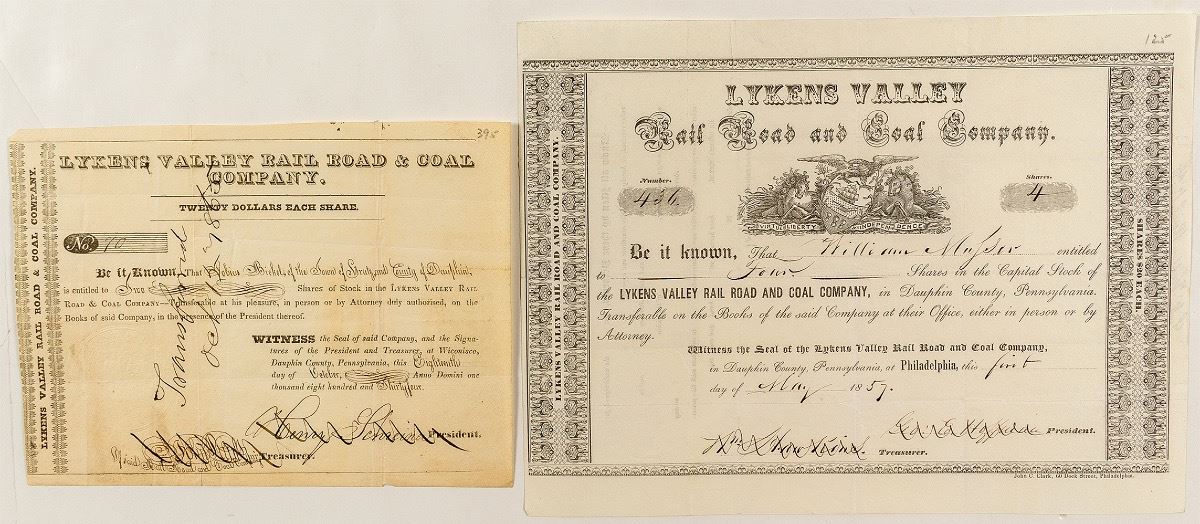 395
LYKENS VALLEY RAIL ROAD & COAL
COMPANY.
TWENTY DOLLARS EACH SHARE.
No. 10
Be it Known, That Bickel, of the Town of and County of Dauphin,
is entitled to Shares of Stock in the LYKENS VALLEY RAIL
ROAD & COAL COMPANY—Transferable at his pleasure, in person or by Attorney duly authorised, on the
Books of said Company, in the presence of the President thereof.
WITNESS the Seal of said Company, and the Signa-
tures of the President and Treasurer, at Wiconisco,
Dauphin County, Pennsylvania, this
day of Anno Domini one
thousand eight hundred and
President.
Treasurer.
LYKENS VALLEY RAIL ROAD & COAL COMPANY.
Transferred
125
LYKENS VALLEY
Rail Road and Coal Company.
Number. Shares.
436 4
VIRTUE LIBERTY AND INDEPENDENCE
Be it known, That William Musser entitled
to Four Shares in the Capital Stock of
the LYKENS VALLEY RAIL ROAD AND COAL COMPANY, in Dauphin County, Pennsylvania.
Transferable on the Books of the said Company at their Office, either in person or by
Attorney.
Witness the Seal of the Lykens Valley Rail Road and Coal Company,
in Dauphin County, Pennsylvania, at Philadelphia, this first
day of May 1857.
President.
Treasurer.
John C. Clark, 60 Dock Street, Philadelphia.
LYKENS VALLEY RAIL ROAD AND COAL COMPANY.
SHARES $20 EACH.